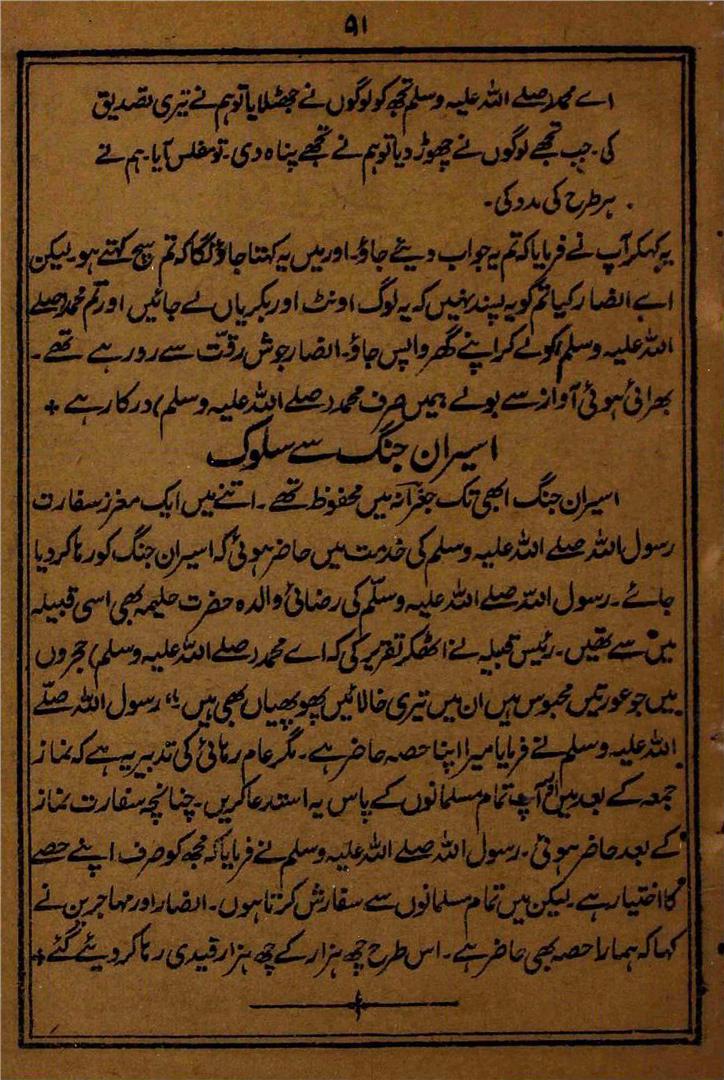 ۹۱
اے محمد صلے اللہ علیہ وسلم تجھ کو لوگوں نے جھٹلایا تو ہم نے تیری تصدیق
کی۔ جب تجھے لوگوں نے چھوڑ دیا تو ہم نے تجھے پناہ دی۔ تو مفلس آیا۔ ہم نے
ہر طرح کی مدد کی۔
یہ کہکر آپ نے فرمایا کہ تم یہ جواب دیئے جاؤ۔ اور میں یہ کہتا جاؤنگا کہ تم سچ کہتے ہو۔ لیکن
اے انصار کیا تم کو یہ پسند نہیں کہ یہ لوگ اونٹ اور بکریاں لے جائیں اور تم محمد (صلے
اللہ علیہ وسلم) کو لے کر اپنے گھر واپس جاؤ۔ انصار جوش رقت سے رو رہے تھے۔
بھرائی ہوئی آواز سے بولے ہمیں صرف محمد (صلے اللہ علیہ وسلم) درکار ہے +
اسیران جنگ سے سلوک
اسیران جنگ ابھی تک جغرانہ میں محفوظ تھے۔ اتنے میں ایک معزز سفارت
رسول اللہ صلے اللہ علیہ وسلم کی خدمت میں حاضر ہوئی کہ اسیران جنگ کو رہا کر دیا
جائے۔ رسول اللہ صلے اللہ علیہ وسلم کی رضائی والدہ حضرت حلیمہ بھی اسی قبیلہ
میں سے تھیں۔ رئیس قبیلہ نے اٹھکر تقریر کی کہ اے محمد (صلے اللہ علیہ وسلم) حجروں
میں جو عورتیں محبوس ہیں ان میں تیری خالائیں پھوپھیاں بھی ہیں" رسول اللہ صلے
اللہ علیہ وسلم نے فرمایا میرا اپنا حصہ حاضر ہے۔ مگر عام رہائی کی تدبیر یہ ہے کہ نماز
جمعہ کے بعد میں اور آپ تمام مسلمانوں کے پاس یہ استدعا کریں۔ چنانچہ سفارت نماز
کے بعد حاضر ہوئی۔ رسول اللہ صلے اللہ علیہ وسلم نے فرمایا کہ مجھ کو صرف اپنے حصے
کا اختیار ہے۔ لیکن میں تمام مسلمانوں سے سفارش کرتا ہوں۔ انصار اور مہاجرین نے
کہا کہ ہمارا حصہ بھی حاضر ہے۔ اس طرح چھ ہزار کے چھ ہزار قیدی رہا کر دیئے گئے +